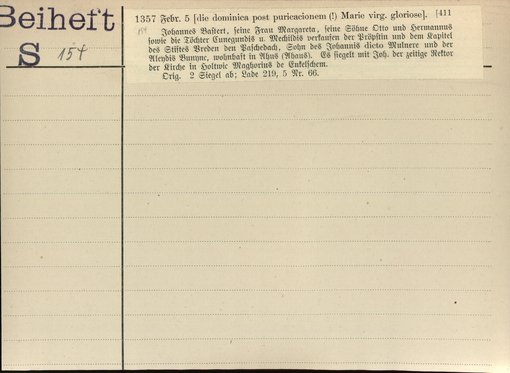 Beiheft
S 154
1357 Febr. 5 [die dominica post puricacionem (!) Marie virg. gloriose]. [411
154
Johannes Bastert, seine Frau Margareta, seine Söhne Otto und Hermannus
sowie die Töchter Cunegundis u. Mechildis verkaufen der Pröpstin und dem Kapitel
des Stiftes Vreden den Paschedach, Sohn des Johannis dicto Mulnere und der
Aleydis Bumyne, wohnhaft in Ahus (Ahaus). Es siegelt mit Joh. der zeitige Rektor
der Kirche in Holtwic Maghorius de Enkelschem.
Orig. 2 Siegel ab; Lade 219, 5 Nr. 66.